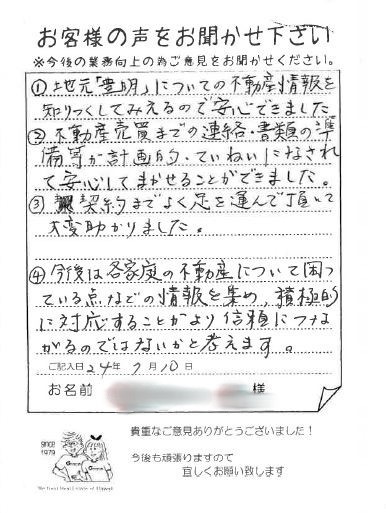 お客様の声をお聞かせ下さい
※今後の業務向上の為ご意見をお聞かせください。
①地元「豊明」についての不動産情報を
知りつくしてみえるので安心できました
②不動産売買までの連絡・書類の準
備等が計画的、ていねいになされ
て安心してまかせることができました。
③契約までよく足を運んで頂いて
大変助かりました。
④今後は各家庭の不動産について困っ
ている点などの情報を集め、積極的
に対応することがより信頼につな
がるのではないかと考えます。
ご記入日24年7月10日
お名前 様
since
1979
貴重なご意見ありがとうございました！
今後も頑張りますので
宜しくお願い致します